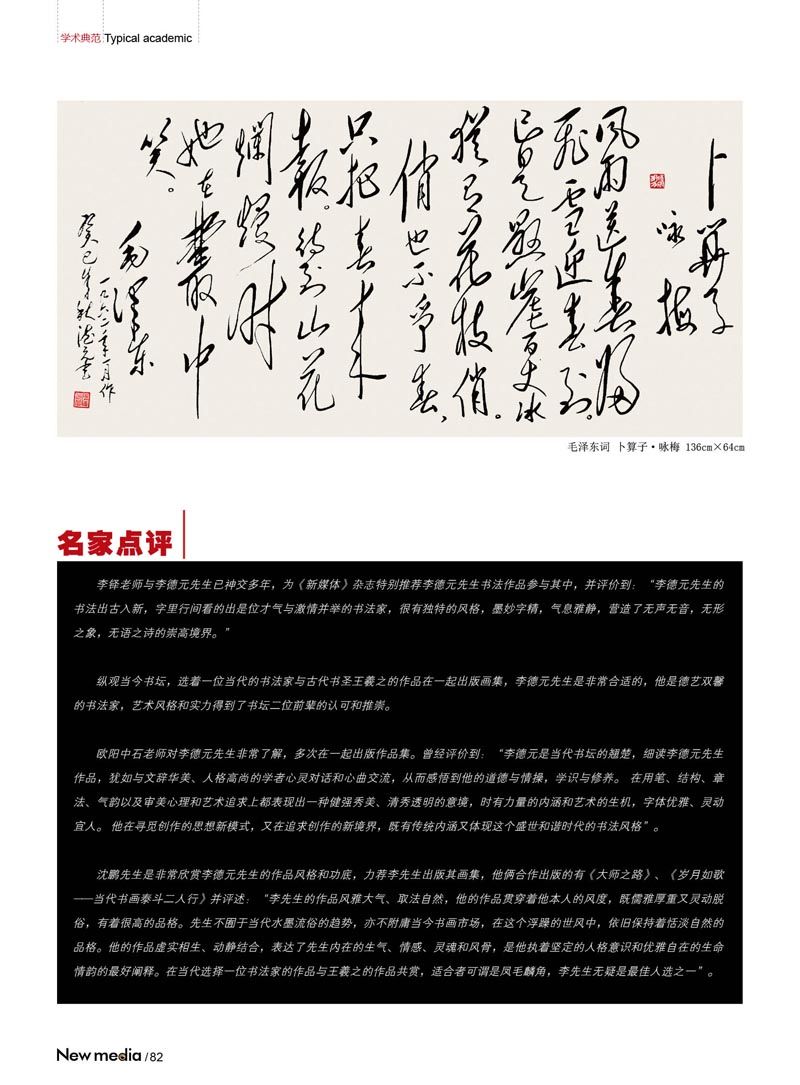 学术典范 Typical academic
卜算子
咏梅
风雨送春归
飞雪迎春到。
已是悬崖百丈冰
犹有花枝俏。
俏也不争春,
只把春来
报。待到山花
烂熳时
她在丛中
笑。
毛泽东
一九六一年十二月作
癸巳年秋德元书
毛泽东词 卜算子·咏梅 136cm×64cm
名家点评
李铎老师与李德元先生已神交多年,为《新媒体》杂志特别推荐李德元先生书法作品参与其中,并评价到:“李德元先生的
书法出古入新,字里行间看的出是位才气与激情并举的书法家,很有独特的风格,墨妙字精,气息雅静,营造了无声无音,无形
之象,无语之诗的崇高境界。”
纵观当今书坛,选着一位当代的书法家与古代书圣王羲之的作品在一起出版画集,李德元先生是非常合适的,他是德艺双馨
的书法家,艺术风格和实力得到了书坛二位前辈的认可和推崇。
欧阳中石老师对李德元先生非常了解,多次在一起出版作品集。曾经评价到:“李德元是当代书坛的翘楚,细读李德元先生
作品,犹如与文辞华美、人格高尚的学者心灵对话和心曲交流,从而感悟到他的道德与情操,学识与修养。 在用笔、结构、章
法、气韵以及审美心理和艺术追求上都表现出一种健强秀美、清秀透明的意境,时有力量的内涵和艺术的生机,字体优雅、灵动
宜人。 他在寻觅创作的思想新模式,又在追求创作的新境界,既有传统内涵又体现这个盛世和谐时代的书法风格”。
沈鹏先生是非常欣赏李德元先生的作品风格和功底,力荐李先生出版其画集,他俩合作出版的有《大师之路》、《岁月如歌
——当代书画泰斗二人行》并评述:“李先生的作品风雅大气、取法自然,他的作品贯穿着他本人的风度,既儒雅厚重又灵动脱
俗,有着很高的品格。先生不囿于当代水墨流俗的趋势,亦不附庸当今书画市场,在这个浮躁的世风中,依旧保持着恬淡自然的
品格。他的作品虚实相生、动静结合,表达了先生内在的生气、情感、灵魂和风骨,是他执着坚定的人格意识和优雅自在的生命
情韵的最好阐释。在当代选择一位书法家的作品与王羲之的作品共赏,适合者可谓是凤毛麟角,李先生无疑是最佳人选之一”。
New media /82